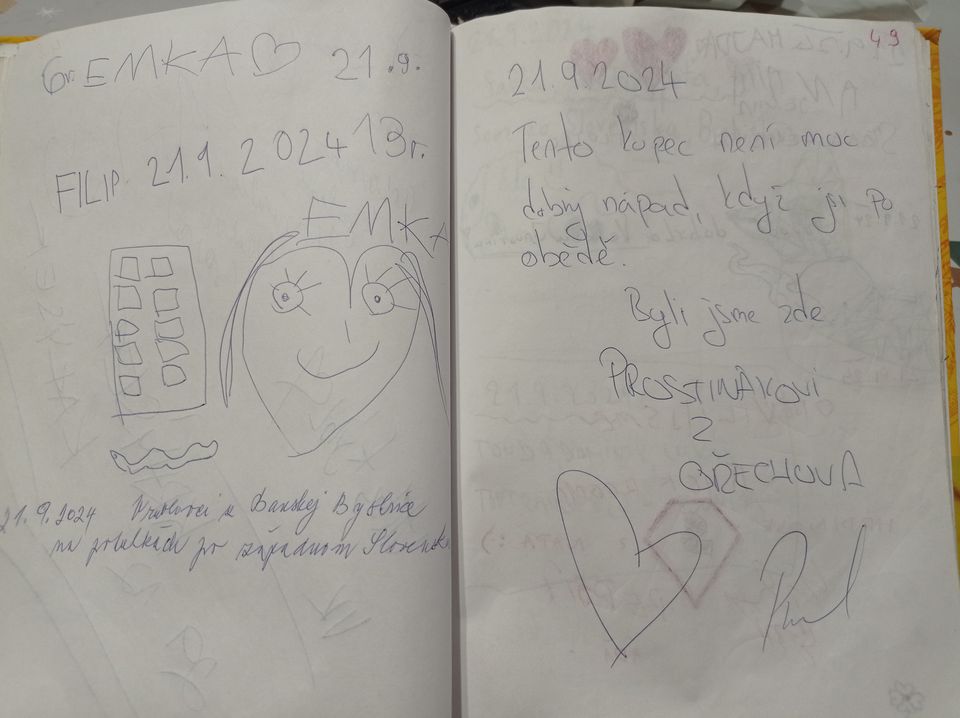 6r. EMKA 21.9.
FILIP 21.9.2024 13r.
EMKA
21.9.2024 z Banskej Bystrice
na potulkách po západnom Slovensk
49
21.9.2024
Tento kopec není moc
dobrý nápad, když jsi po
obědě.
Byli jsme zde
PROSTINÁKOVI
Z
OŘECHOVA